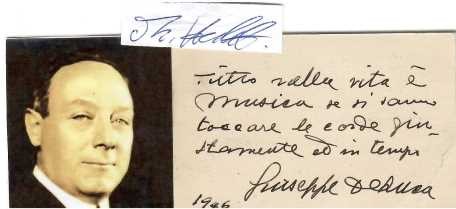 Th.
Tutto nella vita è
musica se si sanno
toccare le corde giu-
stamente ed in tempo
Giuseppe De Luca
1946